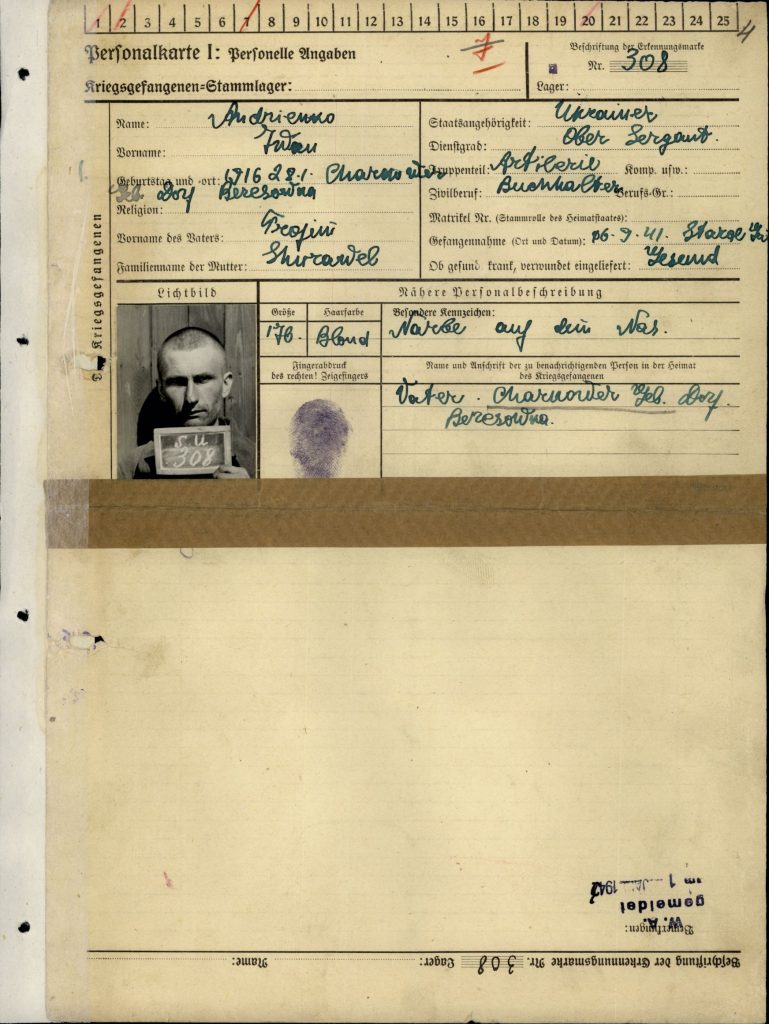 1 2 3 4 5 6 7 8 9 10 11 12 13 14 15 16 17 18 19 20 21 22 23 24 25
4
Personalkarte I: Personelle Angaben
7
Beschriftung der Erkennungsmarke
Nr. 308
Kriegsgefangenen-Stammlager:
Lager:
Des Kriegsgefangenen
Name: Andrienko
Vorname: Iwan
Geburtstag und -ort: 1916 28.1. Charkower
Geb. Dorf Beresowna
Religion:
Vorname des Vaters: Trojim
Familienname der Mutter:
Staatsangehörigkeit: Ukrainer
Dienstgrad: Ober Sergant.
Truppenteil: Artilerie Komp. usw.:
Zivilberuf: Buchhalter Berufs-Gr.:
Matrikel Nr. (Stammrolle des Heimatstaates):
Gefangennahme (Ort und Datum): 26.9.41.
Ob gesund, krank, verwundet eingeliefert: Gesund
Lichtbild
S U
308
Nähere Personalbeschreibung
Größe
176.
Haarfarbe
Blond
Besondere Kennzeichen:
Narbe auf dem Nas.
Fingerabdruck
des rechten! Zeigefingers
Name und Anschrift der zu benachrichtigenden Person in der Heimat
des Kriegsgefangenen
Vater. Charkower Geb. Dorf.
Beresowna.
Bemerkungen:
W. A.
gemeldet
am 1. 1942
Beschriftung der Erkennungsmarke Nr. 308 Lager: Name: